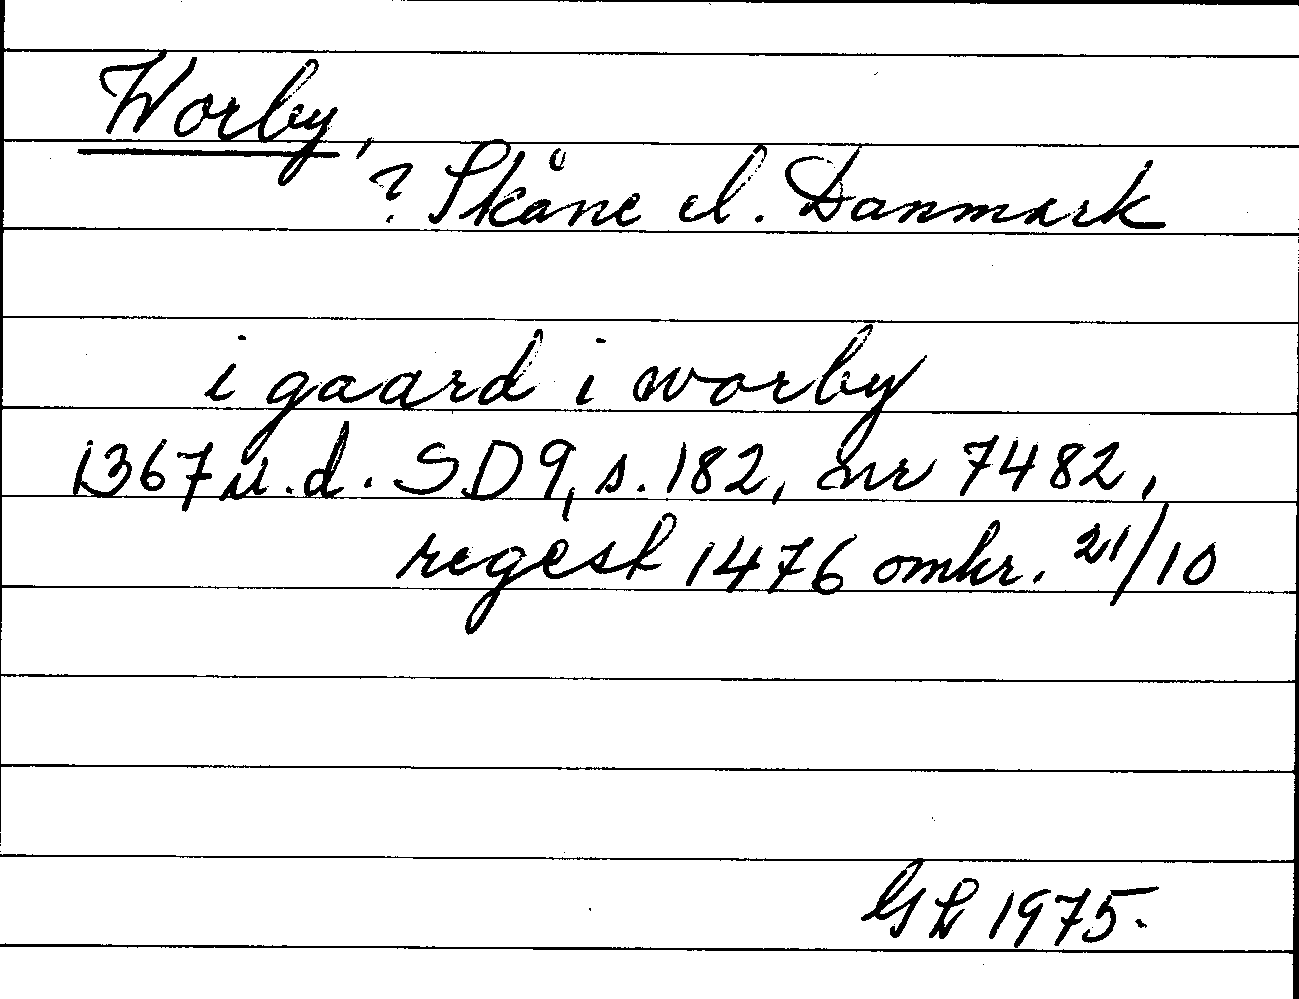 Worby,
? Skåne el. Danmark
i gaard i worby
1367 u.d. SD 9, s. 182, nr 7482,
regest 1476 omkr. 21/10
GL 1975.